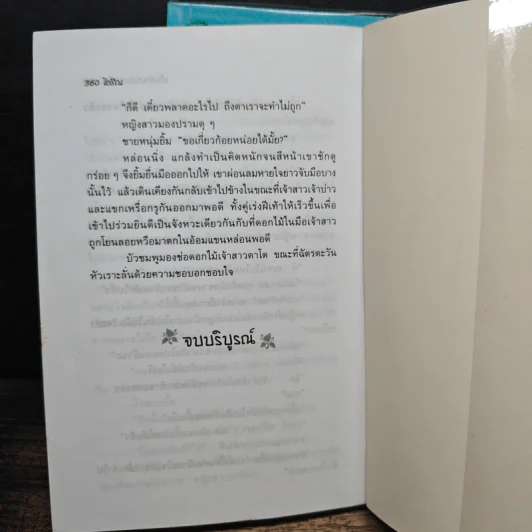 360 โสภิณ
“ก็ดี เดี๋ยวพลาดอะไรไป ถึงตาเราจะทำไม่ถูก”
หญิงสาวมองปรามดุ ๆ
ชายหนุ่มยิ้ม “ขอเกี่ยวก้อยหน่อยได้มั้ย?”
หล่อนนิ่ง แกล้งทำเป็นคิดหนักจนสีหน้าเขาชักดู
กร่อย ๆ จึงยิ้มยื่นมือออกไปให้ เขาผ่อนลมหายใจยาวจับมือบาง
นั้นไว้ แล้วเดินเคียงกันกลับเข้าไปข้างในขณะที่เจ้าสาวเจ้าบ่าว
และแขกเหรื่อกรูกันออกมาพอดี ทั้งคู่เร่งฝีเท้าให้เร็วขึ้นเพื่อ
เข้าไปร่วมยินดีเป็นจังหวะเดียวกันกับที่ดอกไม้ในมือเจ้าสาว
ถูกโยนลอยหวือมาตกในอ้อมแขนหล่อนพอดี
บัวชมพูมองช่อดอกไม้เจ้าสาวตาโต ขณะที่ฉัตรตะวัน
หัวเราะลั่นด้วยความชอบอกชอบใจ
จบบริบูรณ์